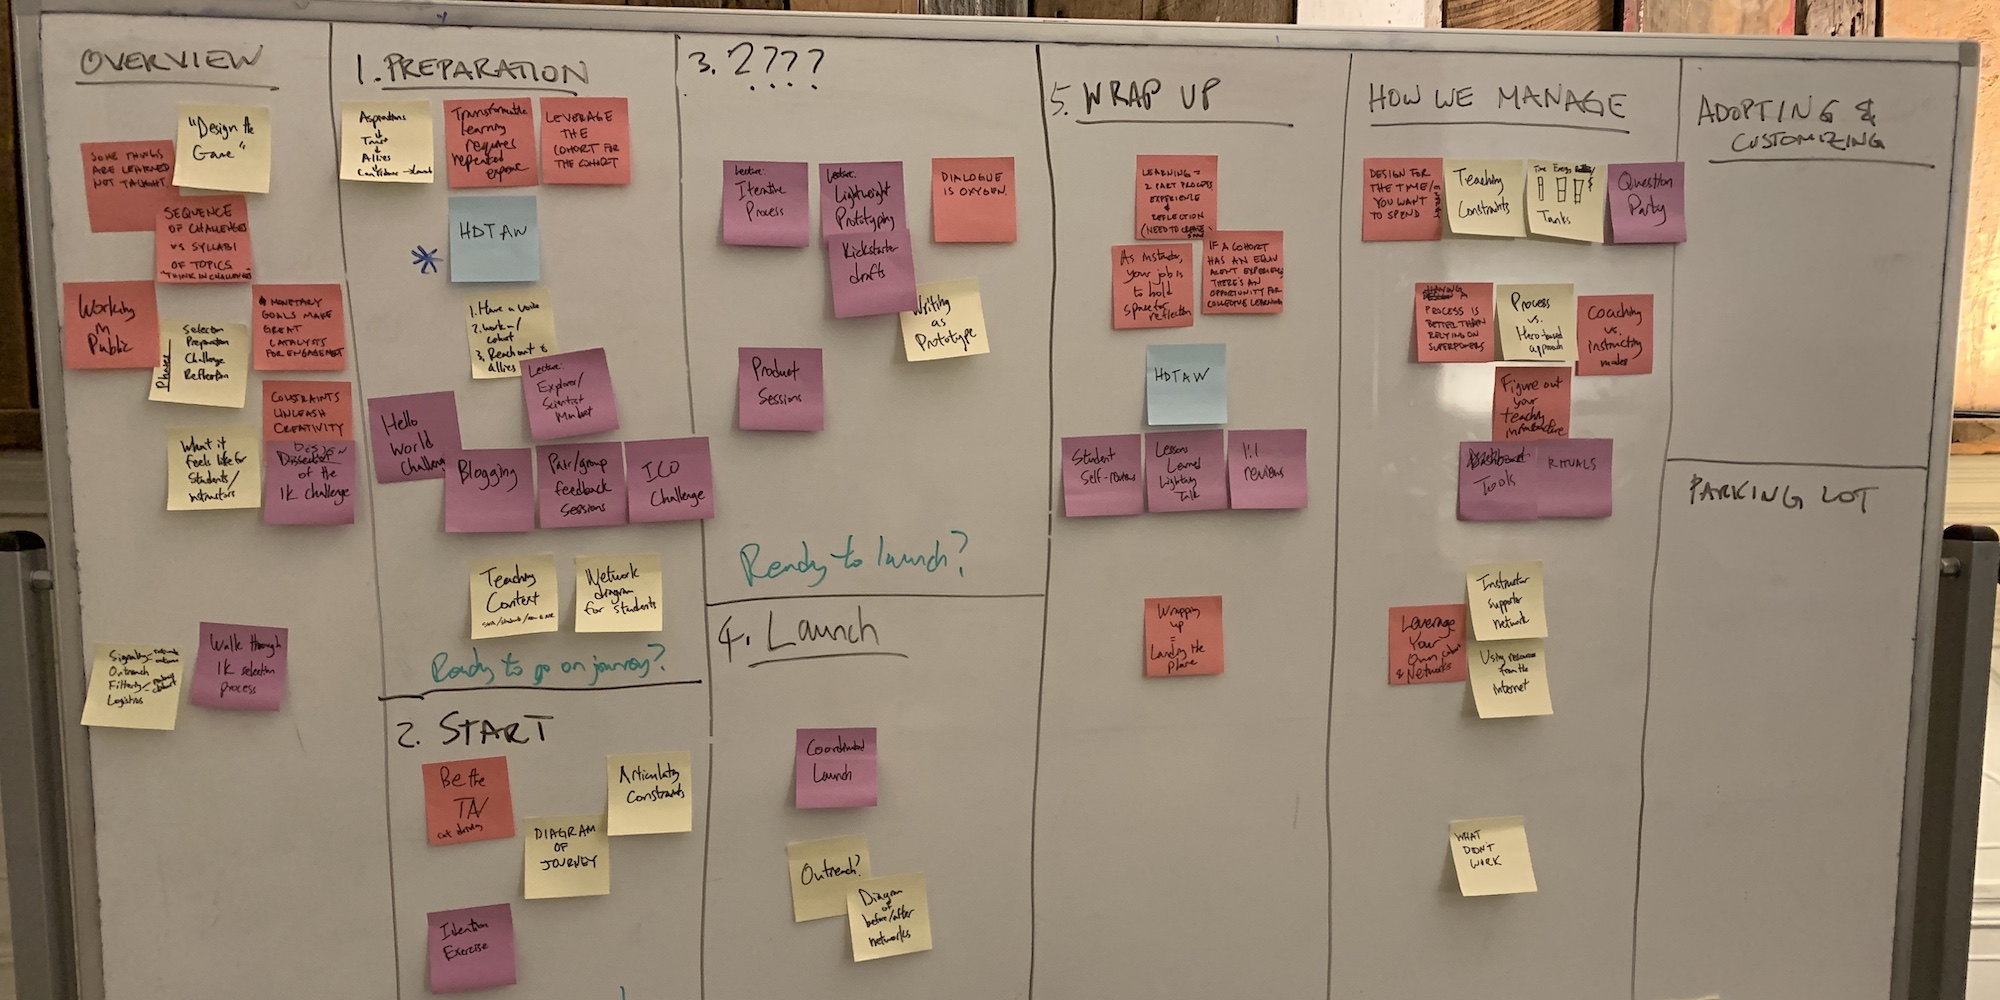 OVERVIEW
"Design the
Game"
SOME THINGS
ARE LEARNED
NOT TAUGHT
SEQUENCE
OF CHALLENGES
VS SYLLABI
OF TOPICS
"THINK IN CHALLENGES"
Working
in
Public
Phases
Selection
Preparation
Challenge
Reflection
MONETARY
GOALS MAKE
GREAT
CATALYSTS
FOR ENGAGEMENT
CONSTRAINTS
UNLEASH
CREATIVITY
What it
feels like for
Students/
instructors
DESIGN
of the
1K challenge
Signaling
Outreach
Filtering
Logistics
Walk through
1K selection
process
1. PREPARATION
Aspirations
↓
Trust
↓
Allies
↓
Confidence
Transformative
Learning
requires
repeated
exposure
LEVERAGE
THE
COHORT FOR
THE COHORT
*
HDTAW
1. Have a voice
2. work w/
cohort
3. Reach out to
allies
Lecture:
Explorer/
Scientist
Mindset
Hello
World
Challenge
Blogging
Pair/group
feedback
Sessions
ICO
Challenge
Teaching
Context
Network
diagram
for students
Ready to go on journey?
2. START
Be the
TA
Articulating
Constraints
DIAGRAM
OF
JOURNEY
Intention
Exercise
3. ????
Lecture:
Iterative
Process
Lecture:
Lightweight
Prototyping
Kickstarter
drafts
DIALOGUE
IS OXYGEN.
Writing
as
Prototype
Product
Sessions
Ready to launch?
4. Launch
Coordinated
Launch
Outreach?
Diagram
of
before/after
networks
5. WRAP UP
LEARNING =
2 PART PROCESS
EXPERIENCE
&
REFLECTION
As instructor,
your job is
to hold
space for
reflection
IF A COHORT
HAS AN EQUIV
ALENT EXPERIENCE
THERE'S AN
OPPORTUNITY FOR
COLLECTIVE LEARNING
HDTAW
Student
Self-reviews
Lessons
Learned
Lightning
Talk
1:1
reviews
Wrapping
up
=
Landing the
plane
HOW WE MANAGE
DESIGN FOR
THE TIME/
YOU WANT
TO SPEND
Teaching
Constraints
Time Energy
Tanks
Question
Party
PROCESS IS
BETTER THAN
RELYING ON
SUPERPOWERS
Process
vs.
Hero-based
approach
Coaching
vs.
instructing
modes
Figure out
your
teaching
infrastructure
Tools
RITUALS
Instructor
support
network
Leverage
Your
Own
& Networks
Using resources
from the
Internet
WHAT
DIDN'T
WORK
ADOPTING &
CUSTOMIZING
PARKING LOT